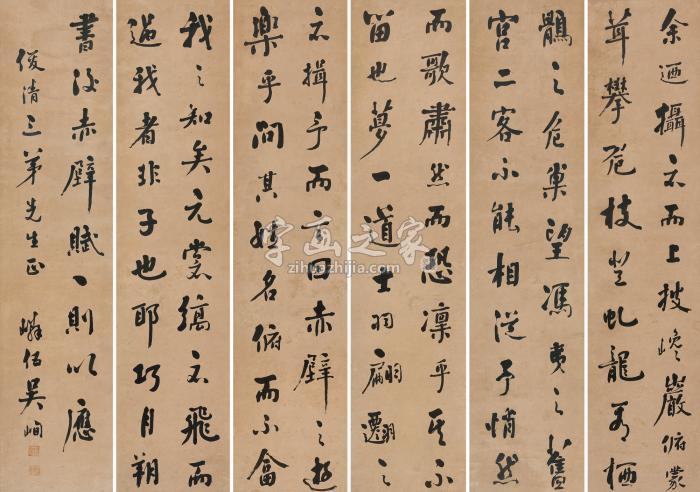 余迺攝衣而上披巉巖俯蒙
茸攀危枝登虬龍栖
鶻之危巢望馮夷之舊
宮二客不能相從予悄然
而歌肅然而恐凜乎其不
笛也夢一道士羽翩躚之
衣揖予而言曰赤壁之遊
樂乎問其姓名俯而不畣
我之知矣元裳縞衣飛而
過我者非子也耶巧月朔
書後赤壁賦一則以應
俊清三弟先生正 嶙伯吳峋
字画之家
zihuazhijia.com